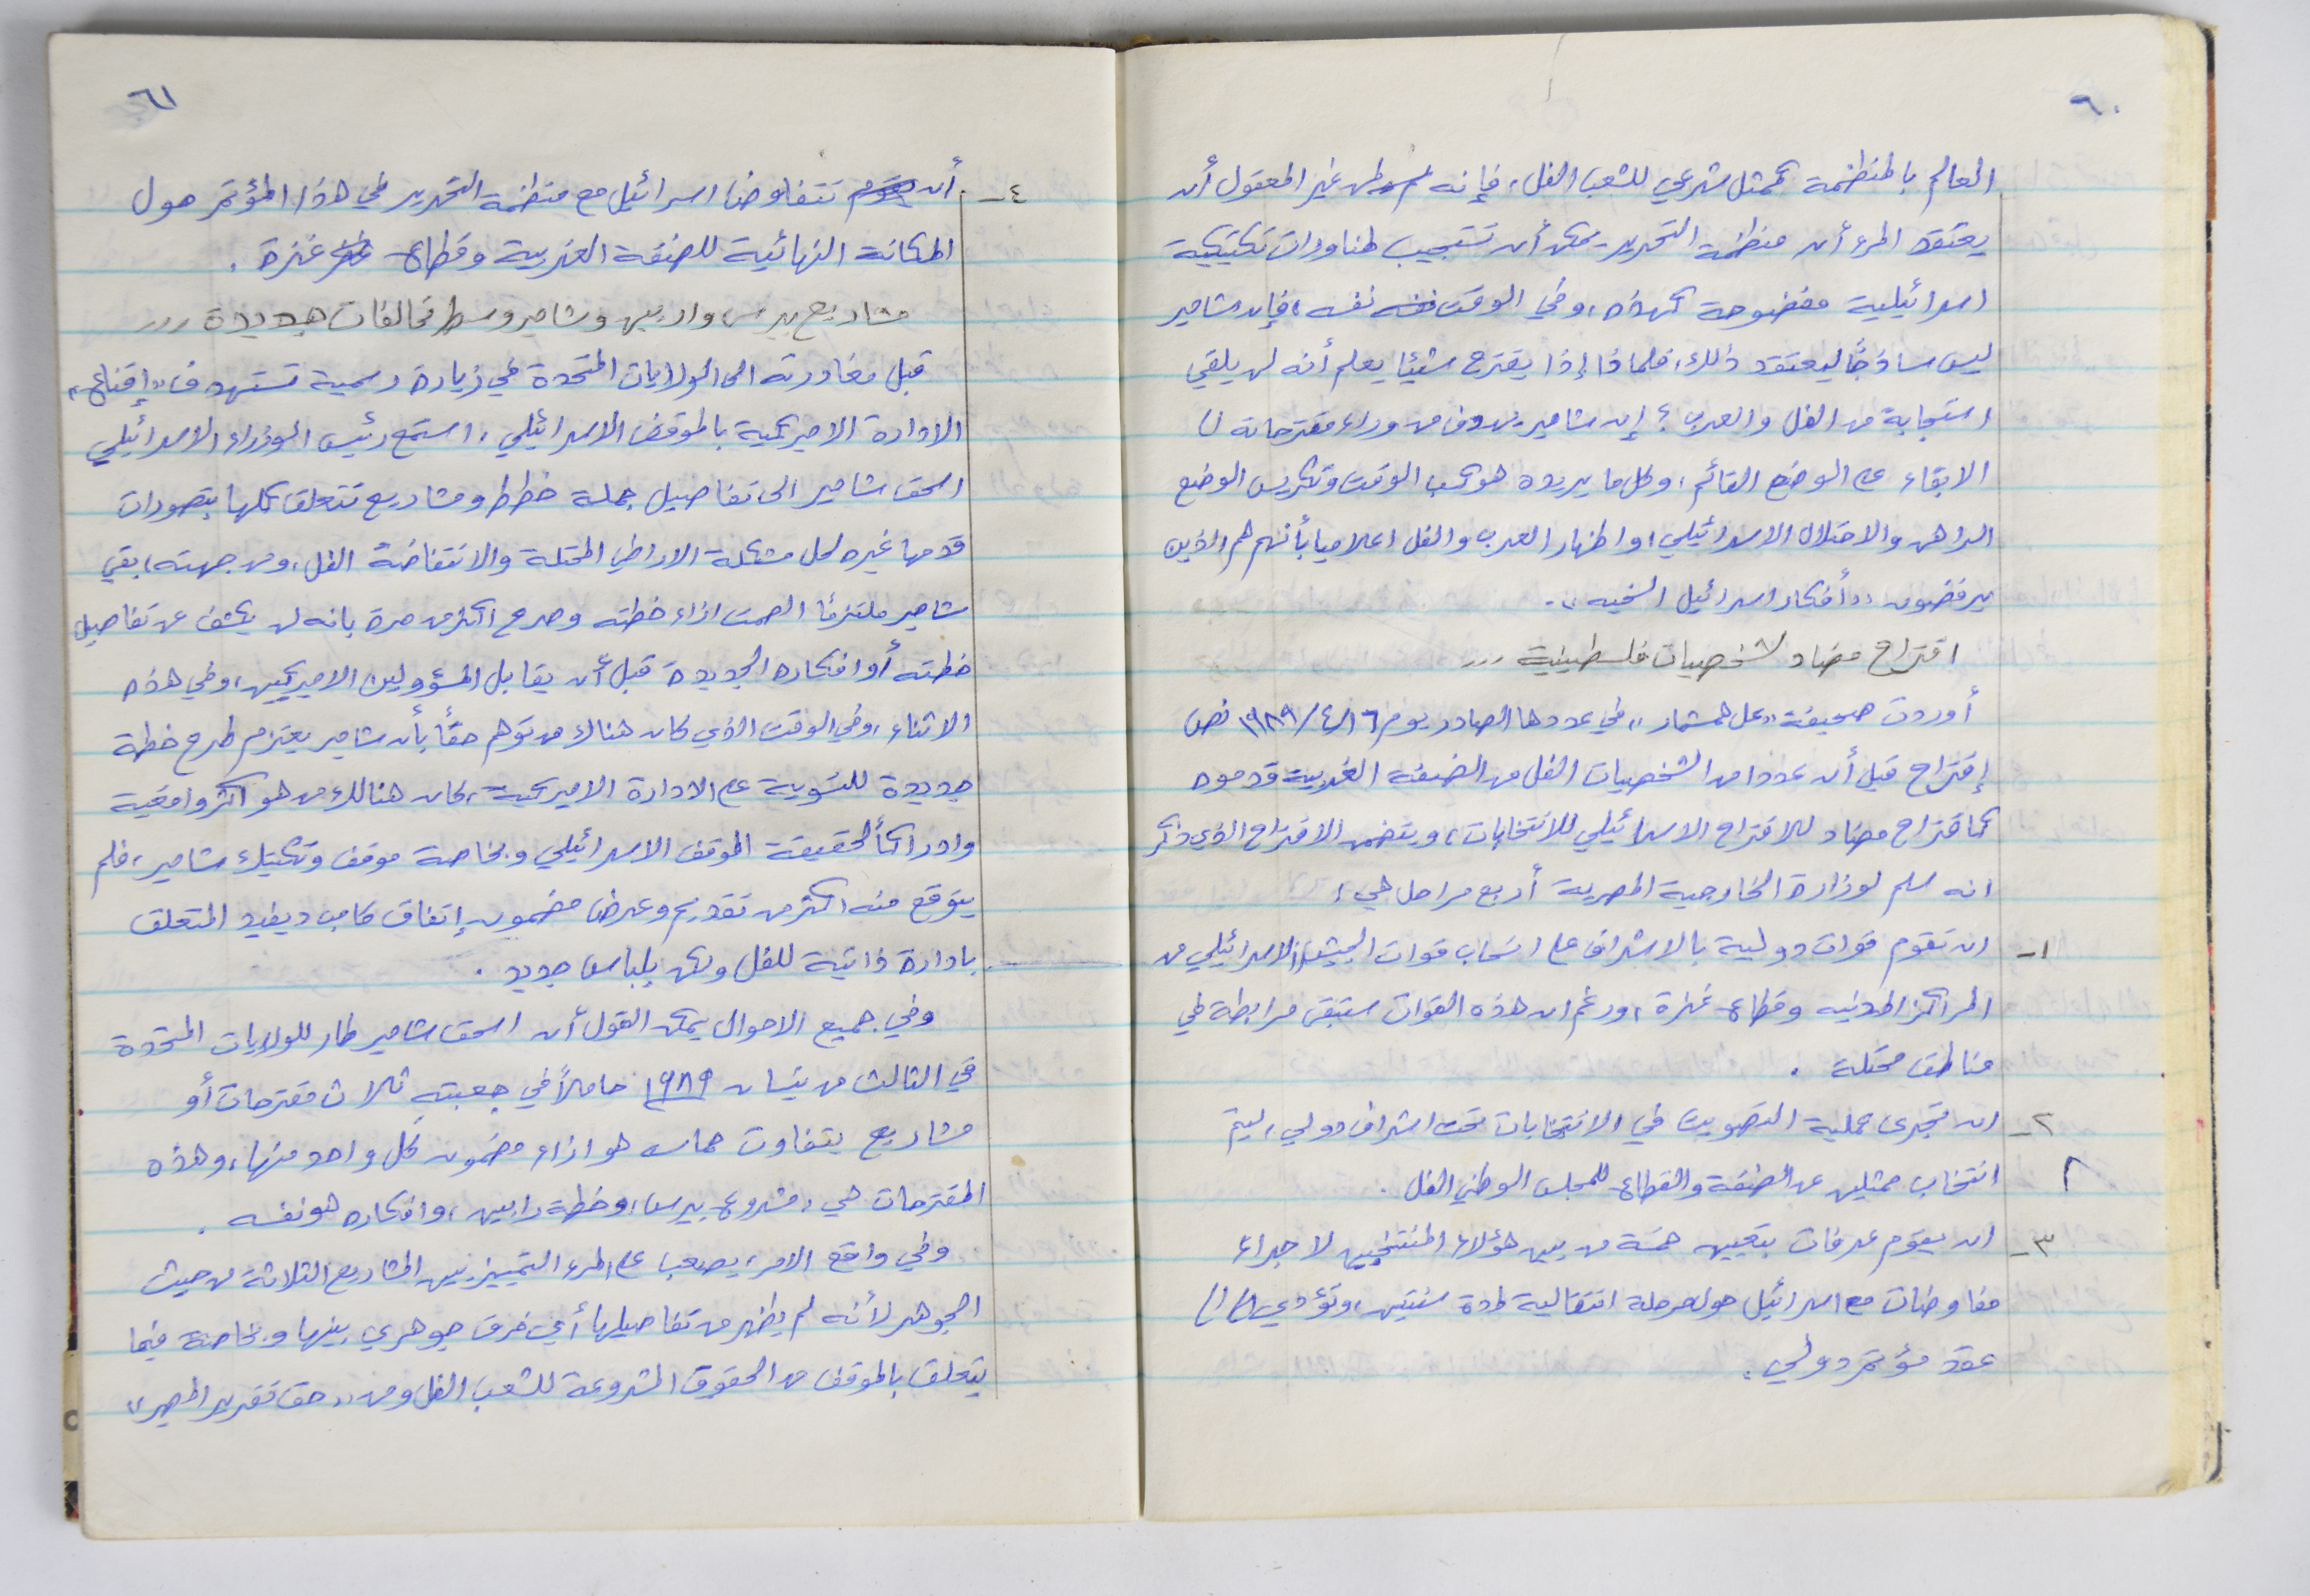 ٦٠
العالم بالمنظمة كممثل شرعي للشعب الفل، فإنه لمن غير المعقول أن
يعتقد المرء أن منظمة التحرير يمكن أن تستجيب لمناورات تكتيكية
اسرائيلية مفضوحة كهذه، وفي الوقت نفسه، فإن شامير
ليس ساذجاً ليعتقد ذلك، فلماذا إذا يقترح شيئا يعلم أنه لن يلقي
استجابة من الفل والعرب؟ إن شامير يهدف من وراء مقترحاته لـ
الابقاء على الوضع القائم، وكل ما يريده هو كسب الوقت وتكريس الوضع
الراهن والاحتلال الاسرائيلي، واظهار العرب والفل اعلاميا بأنهم هم الذين
يرفضون "أفكار اسرائيل السخيه".
اقتراح مضاد لشخصيات فلسطينية ...
أوردت صحيفة "عل همشمار" في عددها الصادر يوم ١٦/٤/١٩٨٩ نص
إقتراح قيل أن عددا من الشخصيات الفل من الضفة الغربية قدموه
كماقتراح مضاد للاقتراح الاسرائيلي للانتخابات، ويتضمن الاقتراح الذي ذكر
انه سلم لوزارة الخارجية المصرية أربع مراحل هي:
١- ان تقوم قوات دولية بالاشراف على انسحاب قوات الجيش الاسرائيلي من
المراكز المدنيه وقطاع غزة، ورغم ان هذه القوات ستبقى مرابطة في
مناطق محتلة.
٢- ان تجري عملية التصويت في الانتخابات تحت اشراف دولي، ليتم
انتخاب ممثلين عن الضفة والقطاع للمجلس الوطني الفل.
٣- ان يقوم عرفات بتعيين خمسة من بين هؤلاء المنتخبين لاجراء
مفاوضات مع اسرائيل حول مرحلة انتقالية لمدة سنتين، وتؤدي الى
عقد مؤتمر دولي.
٦١
٤- أن تتفاوض اسرائيل مع منظمة التحرير في هذا المؤتمر حول
المكانة النهائية للضفة الغربية وقطاع غزة.
مشاريع بيرس ورابين وشامير وسط تحالفات جديدة ...
قبل مغادرته الى الولايات المتحدة في زيارة رسمية تستهدف "إقناع"
الادارة الاميركية بالموقف الاسرائيلي، استمع رئيس الوزراء الاسرائيلي
اسحق شامير الى تفاصيل جملة خطط ومشاريع تتعلق كلها بتصورات
قدمها غيره لحل مشكلة الاراضي المحتلة والانتفاضة الفل، ومن جهته، بقي
شامير ملتزمًا الصمت ازاء خطته وصرح اكثر من مرة بانه لن يكشف عن تفاصيل
خطته أو افكاره الجديدة قبل أن يقابل المسؤولين الاميركيين، وفي هذه
الاثناء، وفي الوقت الذي كان هنالك من توهم حقًا بأن شامير يعتزم طرح خطة
جديدة للتسوية على الادارة الاميركية، كان هنالك من هو اكثر واقعية
وادراكاً لحقيقة الموقف الاسرائيلي وبخاصة موقف وتكتيك شامير، فلم
يتوقع منه اكثر من تقديم وعرض مضمون إتفاق كامب ديفيد المتعلق
بادارة ذاتية للفل ولكن بلباس جديد.
وفي جميع الاحوال يمكن القول أن اسحق شامير طار للولايات المتحدة
في الثالث من نيسان ١٩٨٩ حاملاً في جعبته ثلاث مقترحات أو
مشاريع يتفاوت حماسه هو ازاء مضمون كل واحد منها، وهذه
المقترحات هي، مشروع بيرس، وخطة رابين، وافكاره هو نفسه.
وفي واقع الامر، يصعب على المرء التمييز بين المشاريع الثلاثة من حيث
الجوهر لأنه لم يظهر من تفاصيلها أي فرق جوهري بينها وبخاصة فيما
يتعلق بالموقف من الحقوق المشروعة للشعب الفل ومن "حق تقرير المصير"